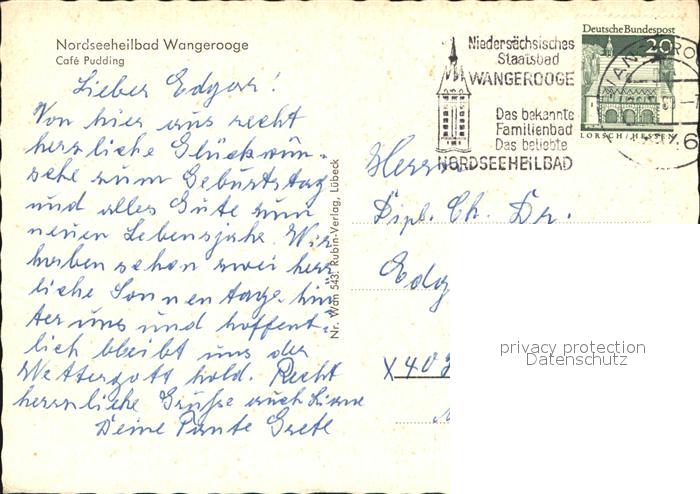 Nordseeheilbad Wangerooge
Café Pudding
Lieber Edgar!
Von hier aus recht
herzliche Glückwün-
sche zum Geburtstag
und alles Gute zum
neuen Lebensjahr. Wir
haben schon zwei herr
liche Sonnentage hin
ter uns und hoffent-
lich bleibt uns der
Wettergott hold. Recht
herzliche Grüße auch Liane
Deine Tante Grete
Nr. Wan 543: Rubin-Verlag, Lübeck
Niedersächsisches
Staatsbad
WANGEROOGE
Das bekannte
Familienbad
Das beliebte
NORDSEEHEILBAD
Deutsche Bundespost
20
LORSCH/HESSEN
Herrn
Dipl. Ch. Dr.
Edg
X 403
privacy protection
Datenschutz